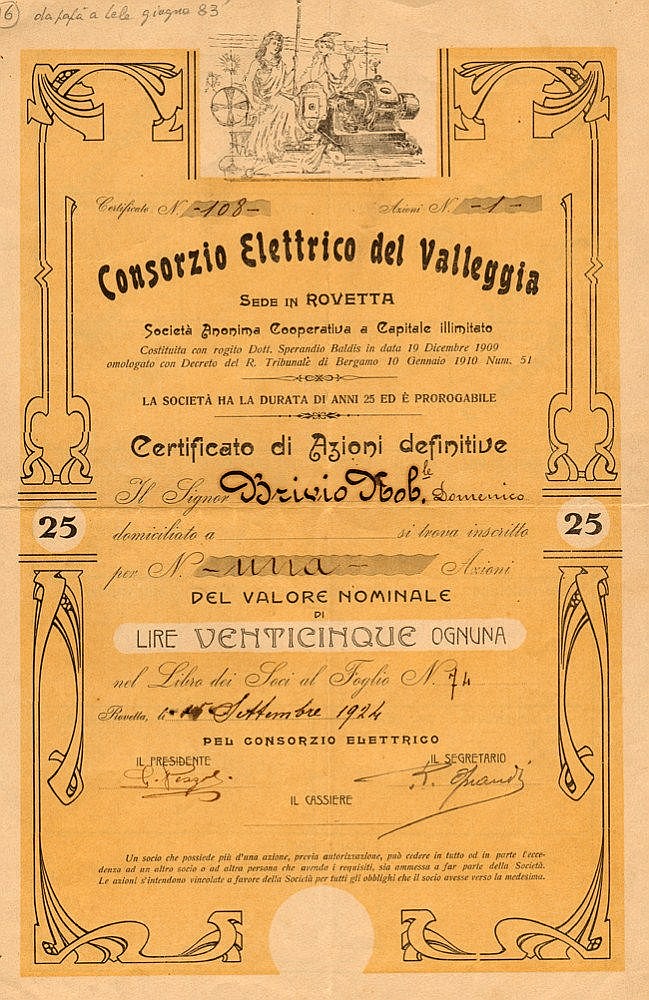 16 da papà a Lele giugno 83
Certificato N. -108- Azioni N. -1-
Consorzio Elettrico del Valleggia
SEDE IN ROVETTA
Società Anonima Cooperativa a Capitale illimitato
Costituita con rogito Dott. Sperandio Baldis in data 19 Dicembre 1909
omologato con Decreto del R. Tribunale di Bergamo 10 Gennaio 1910 Num. 51
LA SOCIETÀ HA LA DURATA DI ANNI 25 ED È PROROGABILE
Certificato di Azioni definitive
Il Signor Brivio Nob.le Domenico
25 25
domiciliato a si trova inscritto
per N. -una- Azioni
DEL VALORE NOMINALE
DI
LIRE VENTICINQUE OGNUNA
nel Libro dei Soci al Foglio N. 74
Rovetta, li 15 Settembre 1924
PEL CONSORZIO ELETTRICO
IL PRESIDENTE IL SEGRETARIO
IL CASSIERE
Un socio che possiede più d'una azione, previa autorizzazione, può cedere in tutto od in parte l'ecce-
denza ad un altro socio o ad altra persona che avendo i requisiti, sia ammessa a far parte della Società.
Le azioni s'intendono vincolate a favore della Società per tutti gli obblighi che il socio avesse verso la medesima.